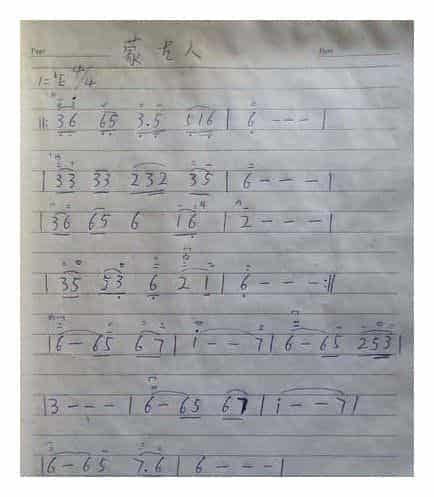 蒙古人
1=ᵇE 4/4
‖: 36 65 3.5 116 | 6 - - - |
| 33 33 232 35 | 6 - - - |
| 36 65 6 16 | 2 - - - |
| 35 53 6 21 | 6 - - - :‖
| 6 - 65 67 | i - - 7 | 6 - 65 253 |
| 3 - - - | 6 - 65 67 | i - - 7 |
| 6 - 65 7.6 | 6 - - - |